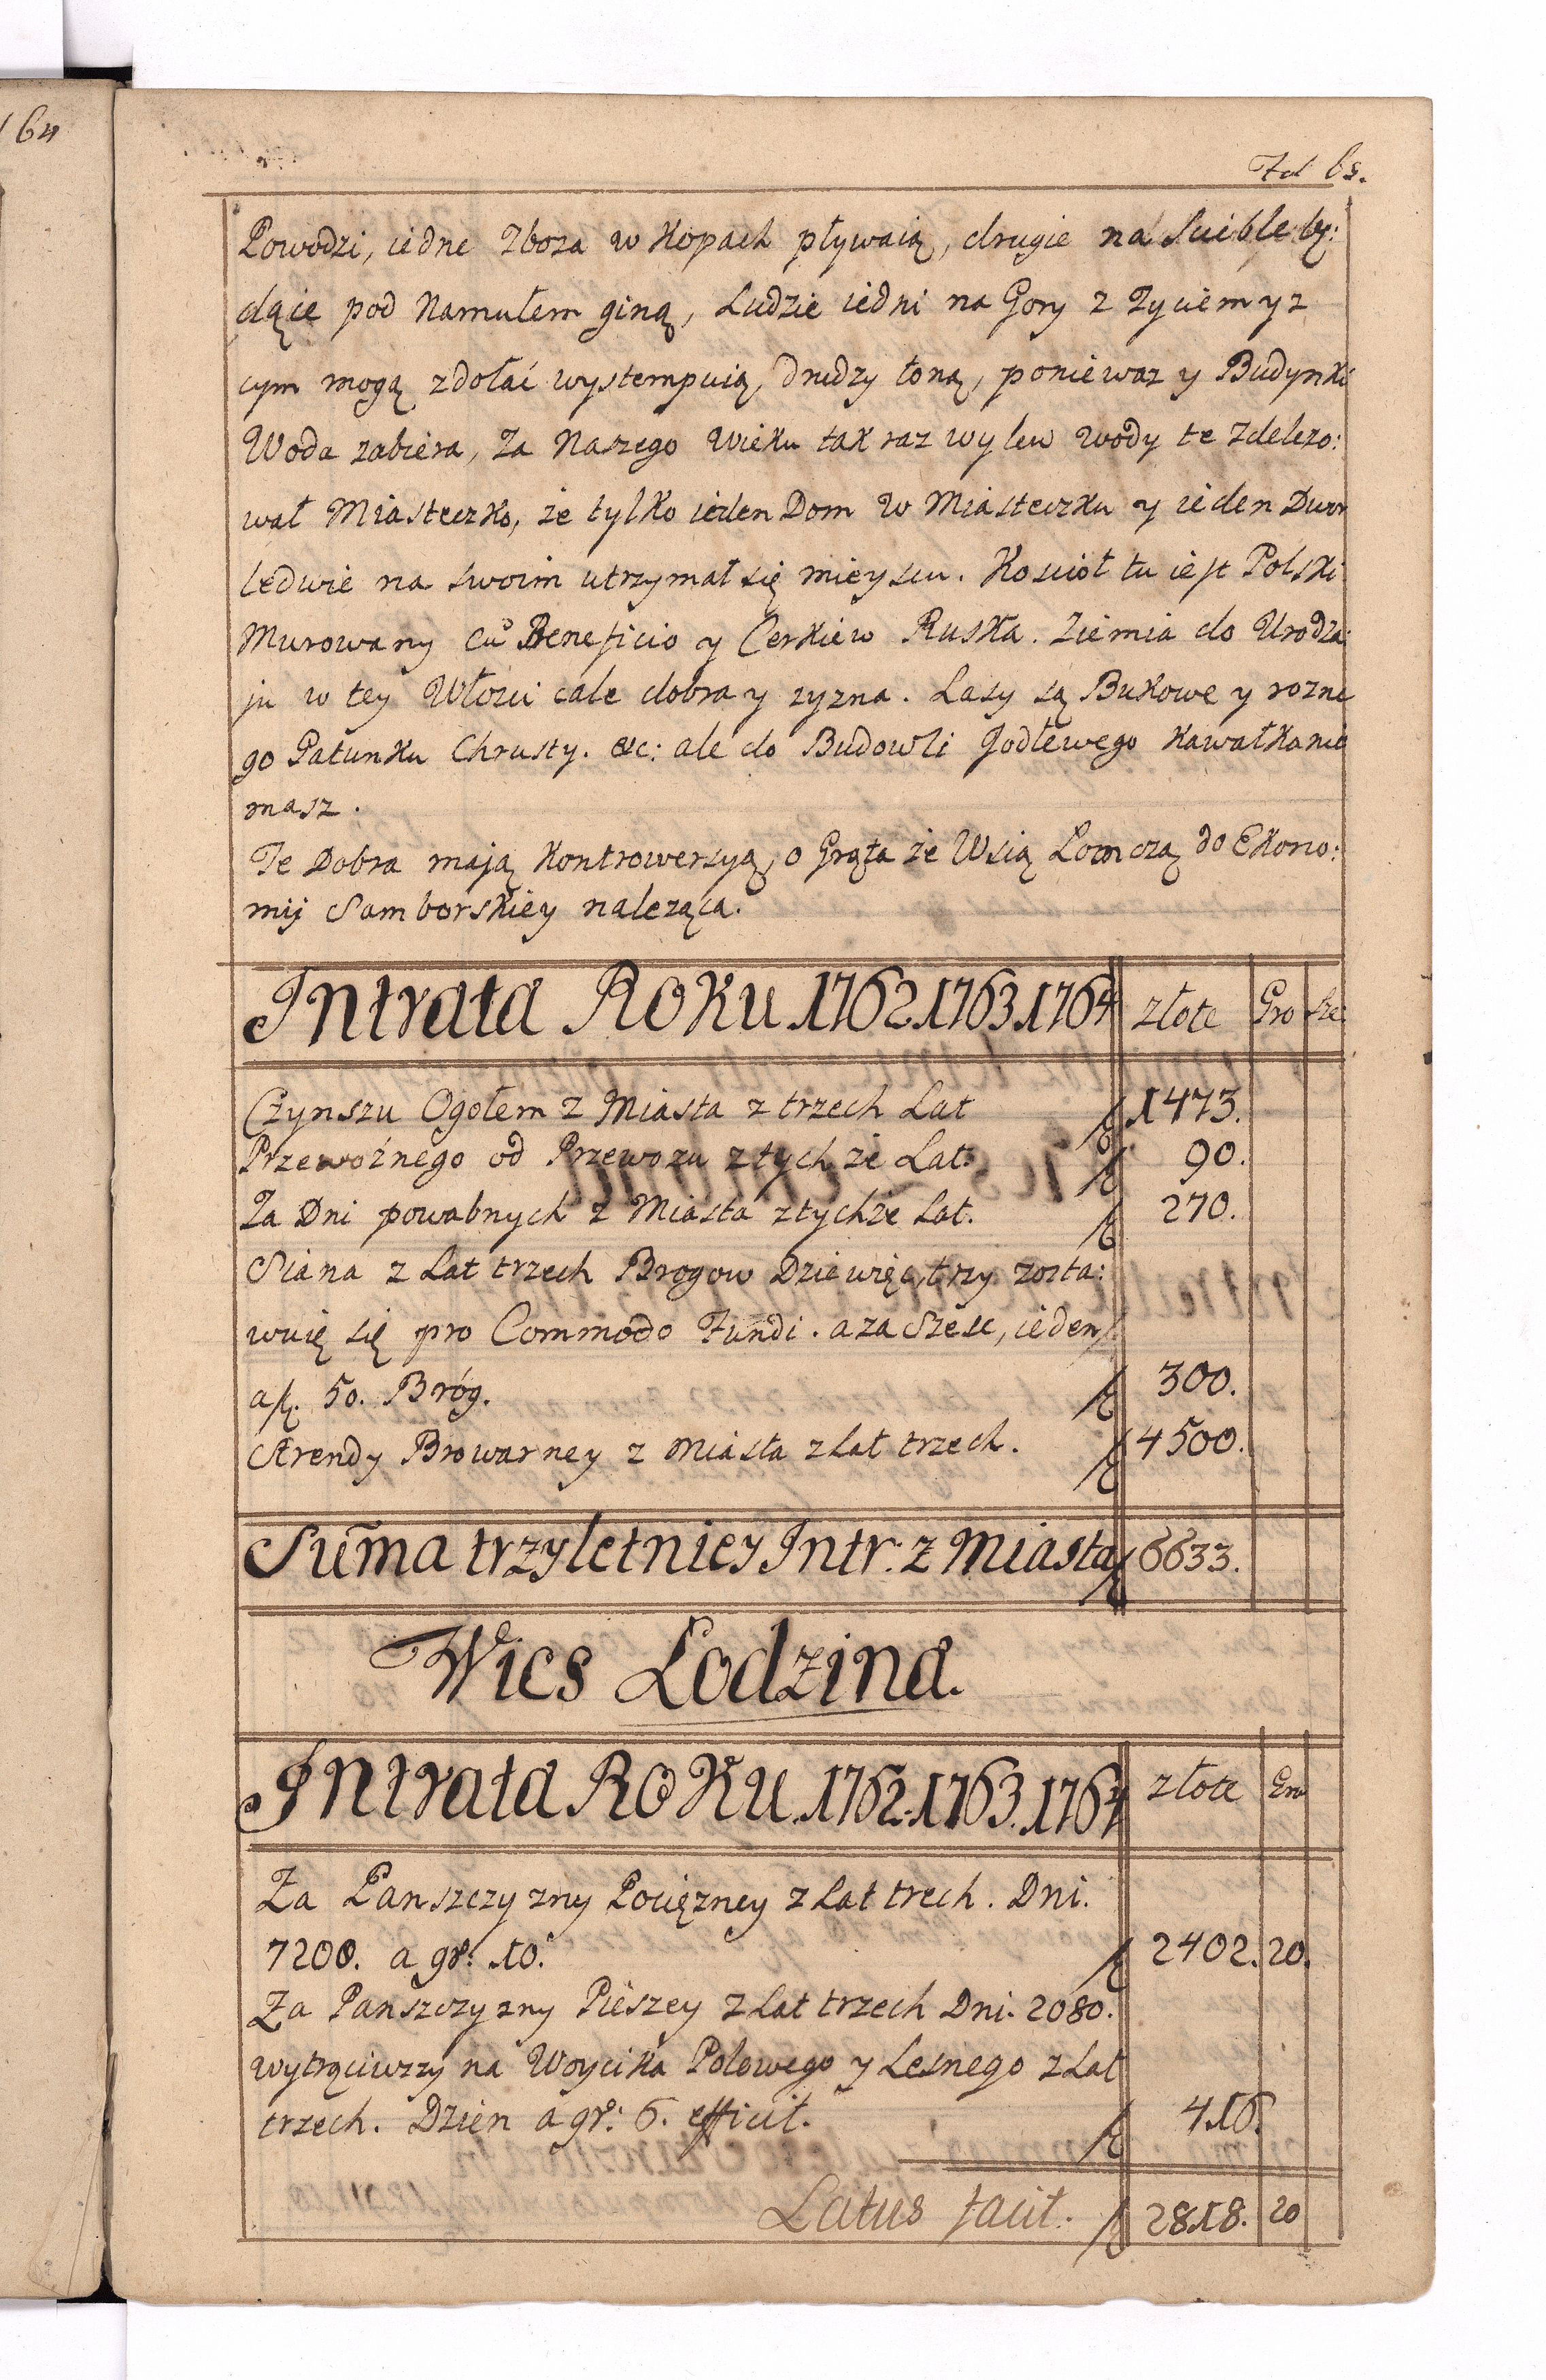 64
Fol 65.
Powodzi, iedne Zboza w Kopach pływaią, drugie na Scieble bę:
dące pod Namułem giną, Ludzie iedni na Gory z Zyciem y z
cym mogą zdołać wystempuią, drudzy toną, poniewaz y Budynki
Woda zabiera, Za Naszego Wieku tak raz wylew wody te Zdelezo:
wał Miasteczko, że tylko ieden Dom w Miasteczku y ieden Dwor
ledwie na swoim utrzymał się mieyscu. Kosciół tu iest Polski
Murowany cū Beneficio y Cerkiew Ruska. Ziemia do Urodza
ju w tey Włości cale dobra y zyzna. Lasy są Bukowe y rozne
go Gatunku Chrusty. etc: ale do Budowli Jodłewego Kawałka nie
masz.
Te Dobra mają Kontrowersyą, o Grąta że Wsią Lomczą do Ekono:
mij Samborskiey naleząca.
Intrata Roku 1762.1763.1764 złote Gro sze
Czynszu Ogołem z Miasta z trzech Lat 1473.
Przewoźnego od Przewozu z tych że Lat. 90.
Za Dni powabnych z Miasta z tychże Lat. 270.
Siana z Lat trzech Brogow Dziewięć, trzy zosta:
wuię się pro Commodo Fundi. a za Szesc, ieden
a fl. 50. Bróg. 300.
Arendy Browarney z Miasta z Lat trzech. 4500.
Sum̄a trzyletniey Intr: z Miasta 6633.
Wies Lodzina.
Intrata Roku .1762.1763.1764 złote Gro
Za Panszczyzny Pociężney z Lat trech. Dni.
7200. a gr: 10. 2402. 20.
Za Panszczyzny Pieszey z Lat trzech Dni. 2080.
wytrąciwszy na Woycika Polowego y Lesnego z Lat
trzech. Dzien a gr: 6. efficit. 416.
Latus facit. 2818. 20